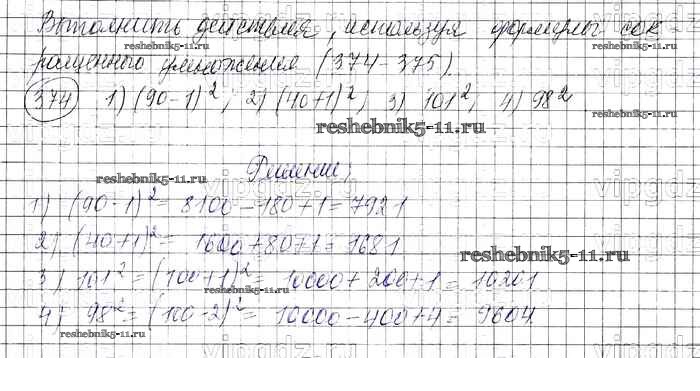 Выполнить действия, используя формулы сок
ращенного умножения (374-375).
374 1) (90-1)², 2) (40+1)², 3) 101², 4) 98²
Решение:
1) (90-1)² = 8100-180+1 = 7921
2) (40+1)² = 1600+80+1 = 1681
3) 101² = (100+1)² = 10000+200+1 = 10201
4) 98² = (100-2)² = 10000-400+4 = 9604.
reshebnik5-11.ru
reshebnik5-11.ru
reshebnik5-11.ru
reshebnik5-11.ru
reshebnik5-11.ru
reshebnik5-11.ru
reshebnik5-11.ru